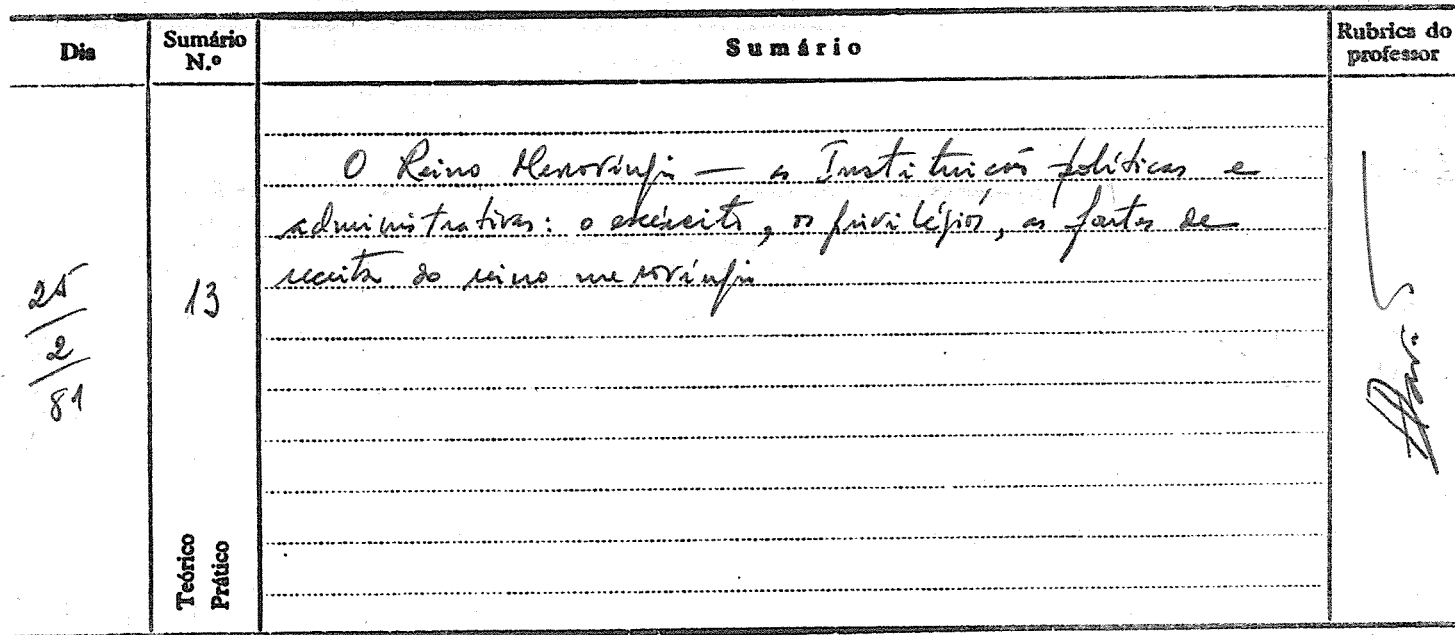 Dia
Sumário N.º
Sumário
Rubrica do professor
25/2/81
13
O Reino Merovíngio — as Instituições políticas e
administrativas: o exército, os privilégios, as fontes de
receita do reino merovíngio
Teórico
Prático